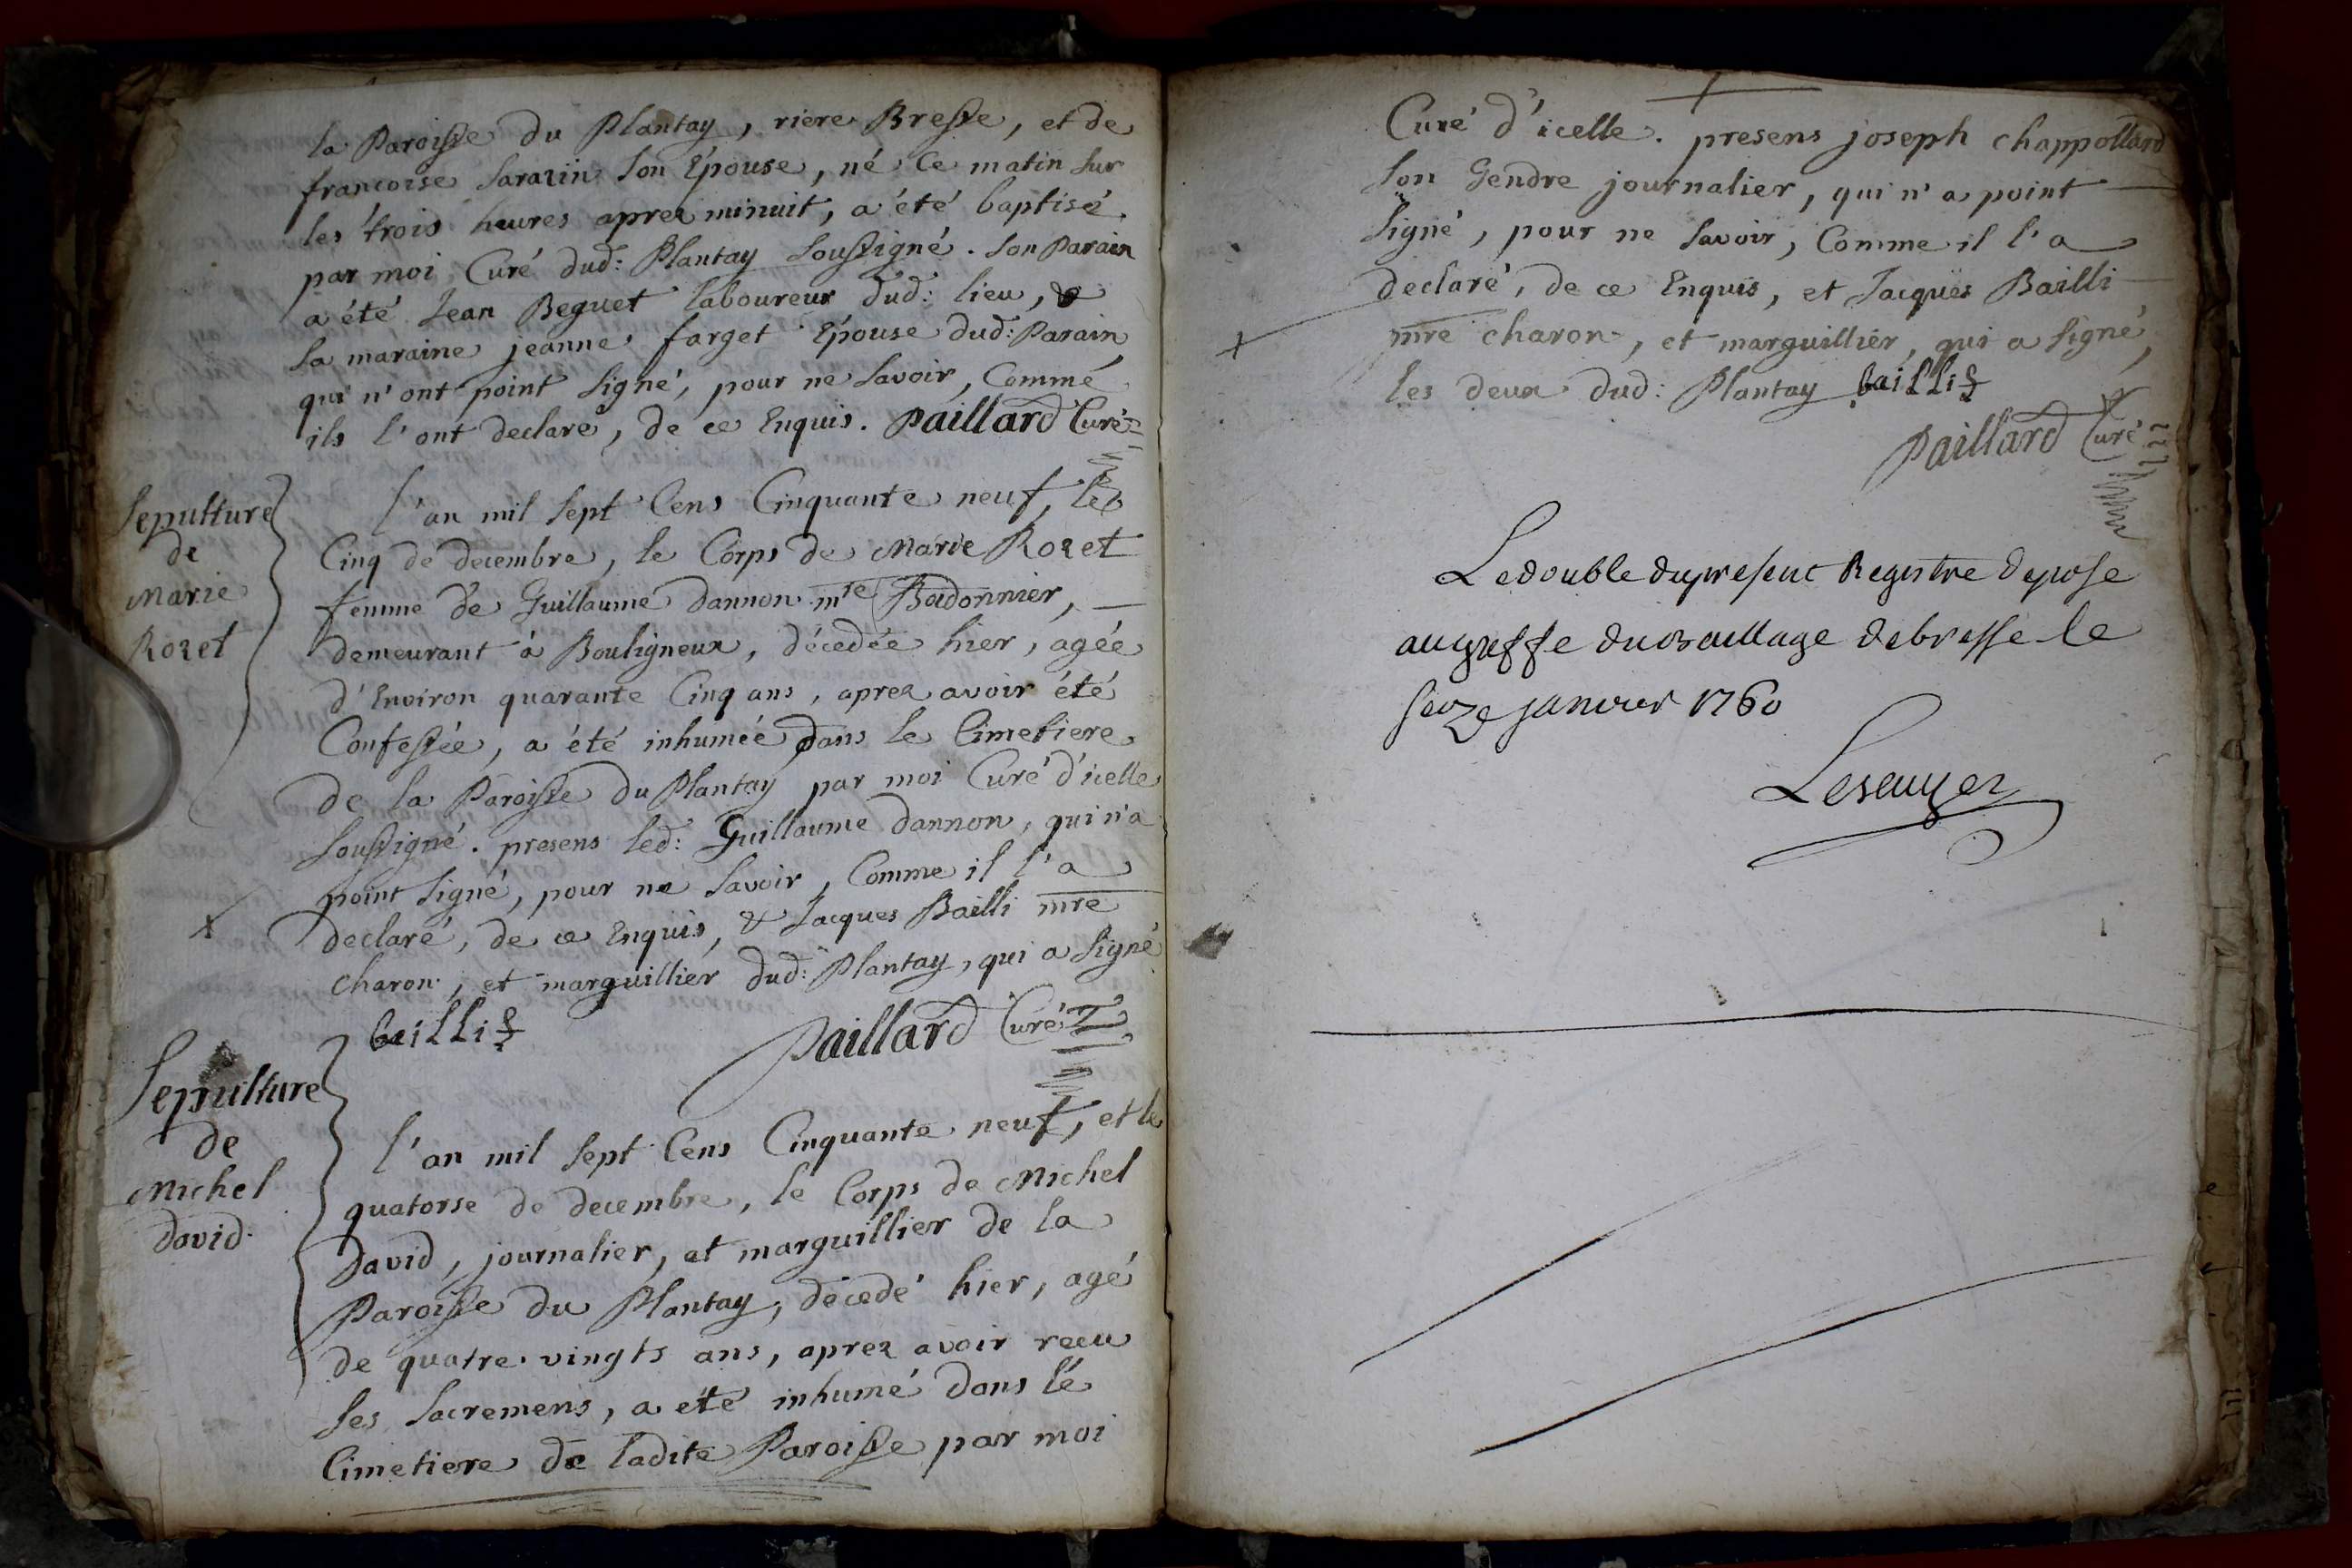 la Paroisse du Plantay, riere Bresse, et de
francoise Sarazin son Epouse, né ce matin sur
les trois heures aprez minuit, a été baptisé
par moi Curé dud: Plantay soussigné. son Parain
a été Jean Beguet laboureur dud: lieu, &
sa maraine jeanne farget Epouse dud: Parain
qui n'ont point signé, pour ne savoir, Comme
ils l'ont declaré, de ce Enquis. Paillard Curé
Sepulture
de
Marie
Rozet
l'an mil sept Cens Cinquante neuf, le
Cinq de decembre, le Corps de Marie Rozet
femme de Guillaume dannon mre
demeurant à Bouligneux, décedée hier, agée
d'Environ quarante Cinq ans, aprez avoir été
Confessée, a été inhumée dans le Cimetiere
de la Paroisse du Plantay par moi Curé d'icelle
soussigné. presens led: Guillaume dannon, qui n'a
point signé, pour ne savoir, Comme il l'a
declaré, de ce Enquis, & Jacques Bailli mre
charon, et marguillier dud: Plantay, qui a signé
bailli
Paillard Curé
Sepulture
de
Michel
david.
l'an mil sept Cens Cinquante neuf, et le
quatorse de decembre, le Corps de Michel
David, journalier, et marguillier de la
Paroisse du Plantay, décedé hier, agé
de quatre vingts ans, aprez avoir recu
ses sacremens, a eté inhumé dans le
Cimetiere de ladite Paroisse par moi
Curé d'icelle. presens joseph chappollard
son Gendre journalier, qui n'a point
signé, pour ne savoir, Comme il l'a
declaré, de ce Enquis, et Jacques Bailli
mre charon, et marguillier, qui a signé,
les deux dud: Plantay bailli
Paillard Curé
Le double du present Registre depose
au greffe du Bailliage de bresse le
seize janvier 1760